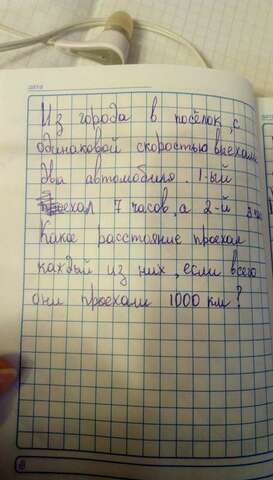 Из города в посёлок, с
одинаковой скоростью выехали
два автомобиля. 1-ый
проехал 7 часов, а 2-й
Какое расстояние проехал
каждый из них, если всего
они проехали 1000 км?